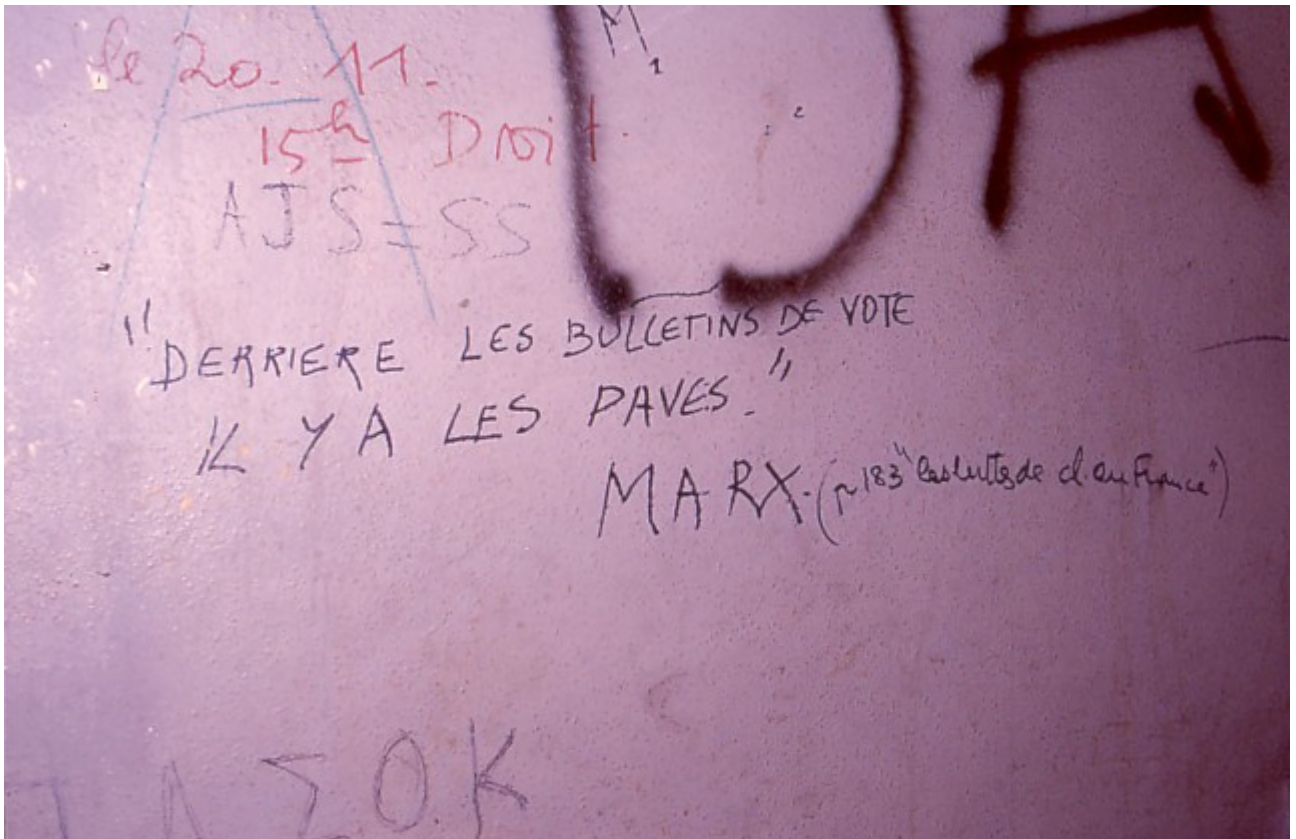 M1
DA
le 20. 11.
15h Droit.
AJS = SS
"DERRIERE LES BULLETINS DE VOTE
IL Y A LES PAVES."
MARX. (p 183 "les luttes de cl. en France")
ΑΣΟ.Κ